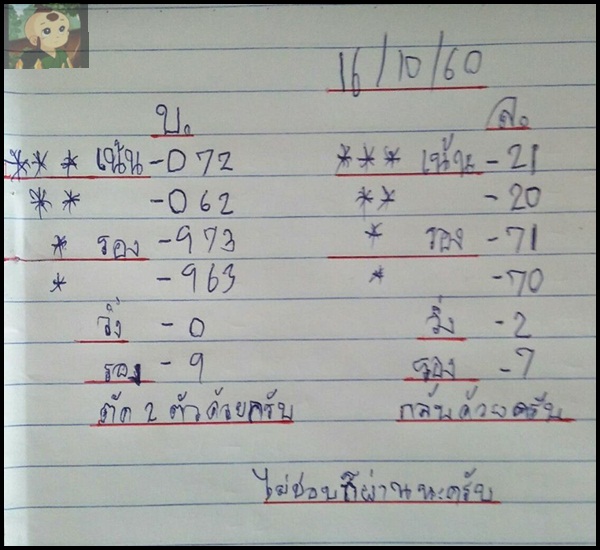 16/10/60
บ. ล.
*** เน้น - 072 *** เน้น - 21
** - 062 ** - 20
* รอง - 973 * รอง - 71
* - 963 * - 70
วิ่ง - 0 วิ่ง - 2
รอง - 9 รอง - 7
ตัด 2 ตัวด้วยครับ กลับด้วยครับ
ไม่ชอบก็ผ่านนะครับ